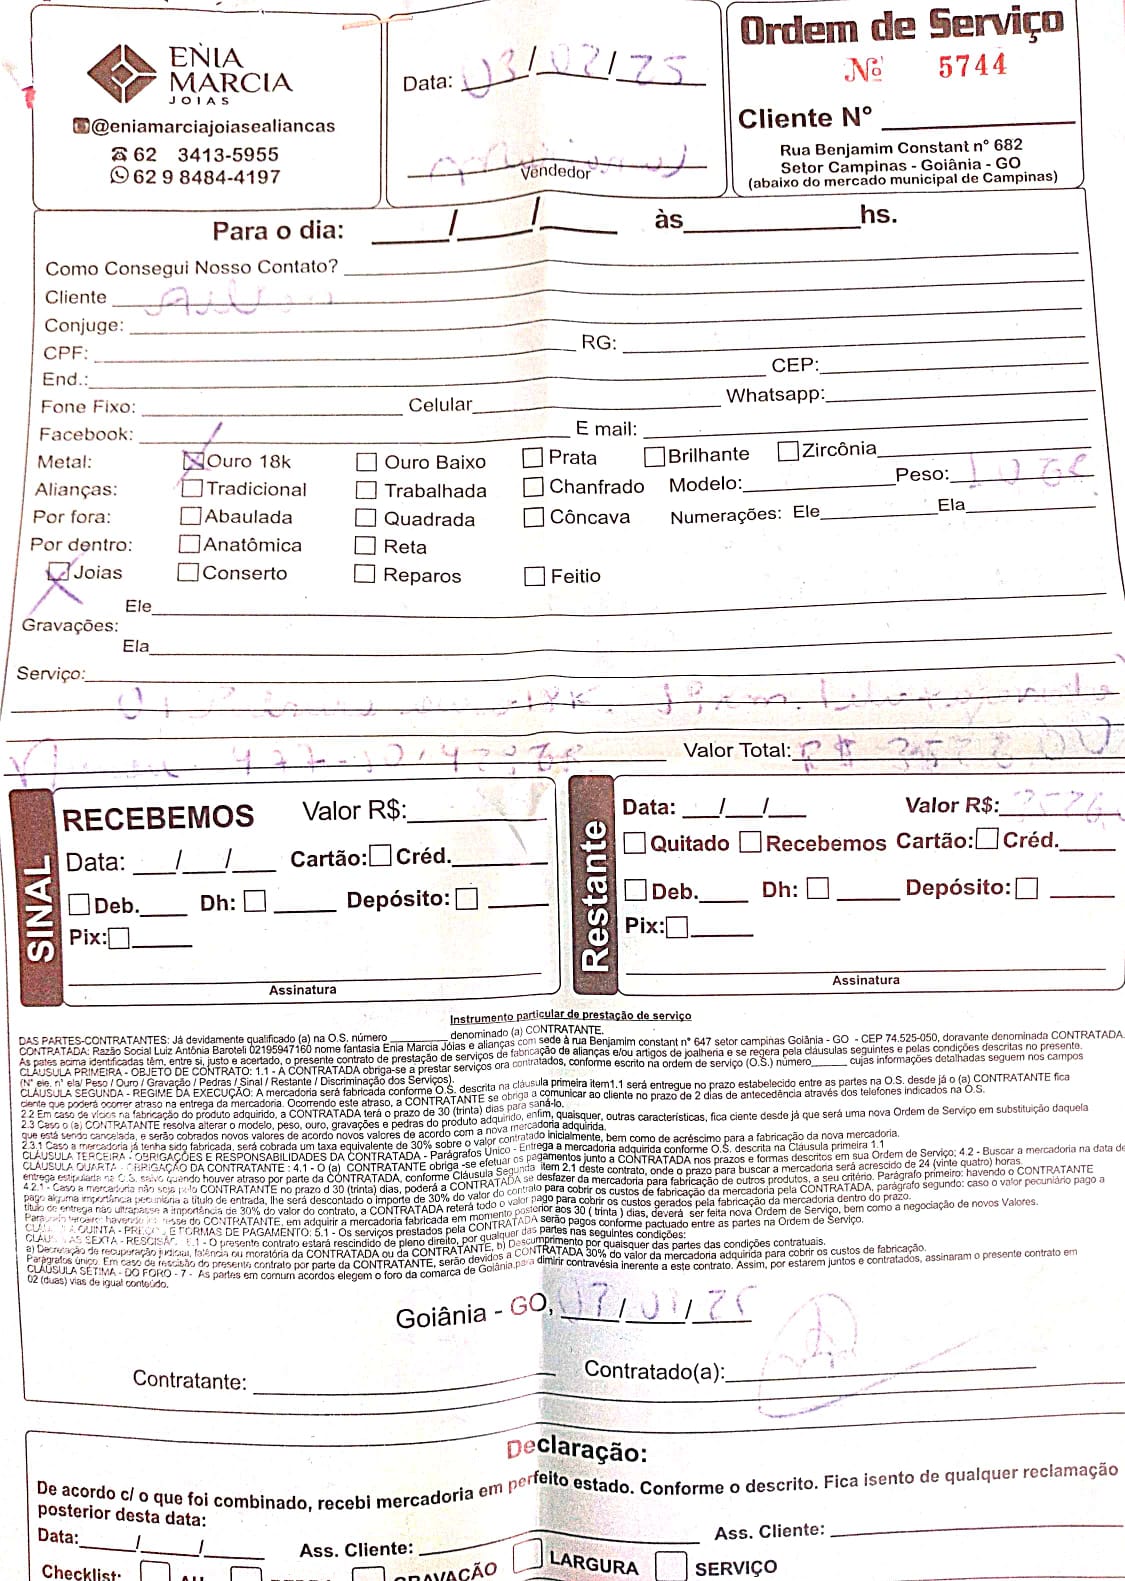 ENIA
MARCIA
JOIAS
@eniamarciajoiasealiancas
62 3413-5955
62 9 8484-4197
Data: 03/02/25
Vendedor
Ordem de Serviço
Nº 5744
Cliente N°
Rua Benjamim Constant n° 682
Setor Campinas - Goiânia - GO
(abaixo do mercado municipal de Campinas)
Para o dia: ___/___/___ às ___ hs.
Como Consegui Nosso Contato?
Cliente
Conjuge:
CPF: RG:
End.: CEP:
Fone Fixo: Celular Whatsapp:
Facebook: E mail:
Metal: Ouro 18k Ouro Baixo Prata Brilhante Zircônia
Alianças: Tradicional Trabalhada Chanfrado Modelo: Peso:
Por fora: Abaulada Quadrada Côncava Numerações: Ele Ela
Por dentro: Anatômica Reta
Joias Conserto Reparos Feitio
Ele
Gravações:
Ela
Serviço:
Valor Total: R$
SINAL
RECEBEMOS Valor R$:
Data: ___/___/___ Cartão: Créd.
Deb. Dh: Depósito:
Pix:
Assinatura
Restante
Data: ___/___/___ Valor R$:
Quitado Recebemos Cartão: Créd.
Deb. Dh: Depósito:
Pix:
Assinatura
Instrumento particular de prestação de serviço
DAS PARTES-CONTRATANTES: Já devidamente qualificado (a) na O.S. número ______ denominado (a) CONTRATANTE.
CONTRATADA: Razão Social Luiz Antônia Baroteli 02195947160 nome fantasia Enia Marcia Jóias e alianças com sede à rua Benjamim constant n° 647 setor campinas Goiânia - GO - CEP 74.525-050, doravante denominada CONTRATADA.
As pates acima identificadas têm, entre si, justo e acertado, o presente contrato de prestação de serviços de fabricação de alianças e/ou artigos de joalheria e se regera pela cláusulas seguintes e pelas condições descritas no presente.
CLÁUSULA PRIMEIRA - OBJETO DE CONTRATO: 1.1 - A CONTRATADA obriga-se a prestar serviços ora contratados, conforme escrito na ordem de serviço (O.S.) número______ cujas informações detalhadas seguem nos campos
(N° ele, n° ela/ Peso / Ouro / Gravação / Pedras / Sinal / Restante / Discriminação dos Serviços).
CLÁUSULA SEGUNDA - REGIME DA EXECUÇÃO: A mercadoria será fabricada conforme O.S. descrita na cláusula primeira item1.1 será entregue no prazo estabelecido entre as partes na O.S. desde já o (a) CONTRATANTE fica
ciente que poderá ocorrer atraso na entrega da mercadoria. Ocorrendo este atraso, a CONTRATANTE se obriga a comunicar ao cliente no prazo de 2 dias de antecedência através dos telefones indicados na O.S.
2.2 Em caso de vícios na fabricação do produto adquirido, a CONTRATADA terá o prazo de 30 (trinta) dias para saná-lo.
2.3 Caso o (a) CONTRATANTE resolva alterar o modelo, peso, ouro, gravações e pedras do produto adquirido, enfim, quaisquer, outras características, fica ciente desde já que será uma nova Ordem de Serviço em substituição daquela
que está sendo cancelada, e serão cobrados novos valores de acordo novos valores de acordo com a nova mercadoria adquirida.
2.3.1 Caso a mercadoria já tenha sido fabricada, será cobrada um taxa equivalente de 30% sobre o valor contratado inicialmente, bem como de acréscimo para a fabricação da nova mercadoria.
CLÁUSULA TERCEIRA - OBRIGAÇÕES E RESPONSABILIDADES DA CONTRATADA - Parágrafos Único - Entrega a mercadoria adquirida conforme O.S. descrita na Cláusula primeira 1.1
CLÁUSULA QUARTA - OBRIGAÇÃO DA CONTRATANTE : 4.1 - O (a) CONTRATANTE obriga -se efetuar os pagamentos junto a CONTRATADA nos prazos e formas descritos em sua Ordem de Serviço; 4.2 - Buscar a mercadoria na data de
entrega estipulada na O.S. salvo quando houver atraso por parte da CONTRATADA, conforme Cláusula Segunda item 2.1 deste contrato, onde o prazo para buscar a mercadoria será acrescido de 24 (vinte quatro) horas.
4.2.1 - Caso a mercadoria não seja pelo CONTRATANTE no prazo de 30 (trinta) dias, poderá a CONTRATADA se desfazer da mercadoria para fabricação de outros produtos, a seu critério. Parágrafo primeiro: havendo o CONTRATANTE
pago alguma importância pecuniária a título de entrada, lhe será descontado o importe de 30% do valor do contrato para cobrir os custos de fabricação da mercadoria pela CONTRATADA, parágrafo segundo: caso o valor pecuniário pago a
título de entrega não ultrapasse a importância de 30% do valor do contrato, a CONTRATADA reterá todo o valor pago para cobrir os custos gerados pela fabricação da mercadoria dentro do prazo.
Parágrafo terceiro: havendo interesse do CONTRATANTE, em adquirir a mercadoria fabricada em momento posterior aos 30 ( trinta ) dias, deverá ser feita nova Ordem de Serviço, bem como a negociação de novos Valores.
CLÁUSULA QUINTA - PREÇO E FORMAS DE PAGAMENTO: 5.1 - Os serviços prestados pela CONTRATADA serão pagos conforme pactuado entre as partes na Ordem de Serviço.
CLÁUSULAS SEXTA - RESCISÃO: 6.1 - O presente contrato estará rescindido de pleno direito, por qualquer das partes nas seguintes condições:
a) Decretação de recuperação judicial, falência ou moratória da CONTRATADA ou da CONTRATANTE, b) Descumprimento por quaisquer das partes das condições contratuais.
Parágrafos único. Em caso de rescisão do presente contrato por parte da CONTRATANTE, serão devidos a CONTRATADA 30% do valor da mercadoria adquirida para cobrir os custos de fabricação.
CLÁUSULA SÉTIMA - DO FORO - 7 - As partes em comum acordos elegem o foro da comarca de Goiânia para dimirir contravésia inerente a este contrato. Assim, por estarem juntos e contratados, assinaram o presente contrato em
02 (duas) vias de igual conteúdo.
Goiânia - GO,
Contratante: Contratado(a):
Declaração:
De acordo c/ o que foi combinado, recebi mercadoria em perfeito estado. Conforme o descrito. Fica isento de qualquer reclamação
posterior desta data:
Data: ___/___/___ Ass. Cliente: Ass. Cliente:
Checklist: GRAVAÇÃO LARGURA SERVIÇO